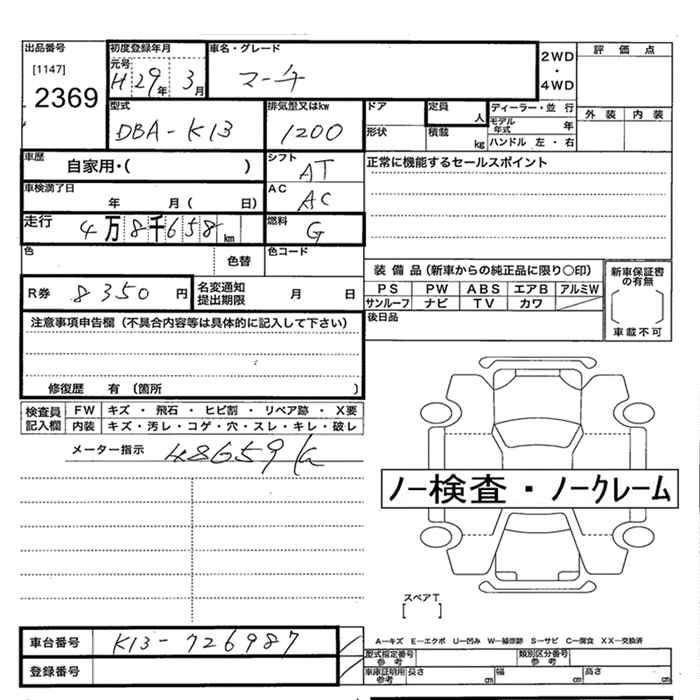 出品番号 初度登録年月 車名・グレード 2WD・4WD 評価点
[1147] 元号 H 29年 3月 マーチ
2369 型式 排気量又はkw ドア 定員 人 ディーラー・並 行 外装 内装
DBA-K13 1200 形状 積載 kg モデル年式 年
ハンドル 左・右
車歴 自家用・( ) シフト AT 正常に機能するセールスポイント
車検満了日 年 月( 日) AC AC
走行 4万8千658km 燃料 G
色 色替 色コード
装備品(新車からの純正品に限り○印) 新車保証書の有無
R券 8350円 名変通知提出期限 月 日 PS PW ABS エアB アルミW
サンルーフ ナビ TV カワ
注意事項申告欄(不具合内容等は具体的に記入して下さい) 後日品 車載不可
修復歴 有(箇所 )
検査員記入欄 FW キズ・飛石・ヒビ割・リペア跡・X要
内装 キズ・汚レ・コゲ・穴・スレ・キレ・破レ
メーター指示 48659k
ノー検査・ノークレーム
スペアT
[ ]
車台番号 K13-726987 A−キズ E−エクボ U−凹み W−補修跡 S−サビ C−腐食 XX−交換済
型式指定番号 参考 類別区分番号 参考
登録番号 車庫証明用 参考 長さ cm 幅 cm 高さ cm